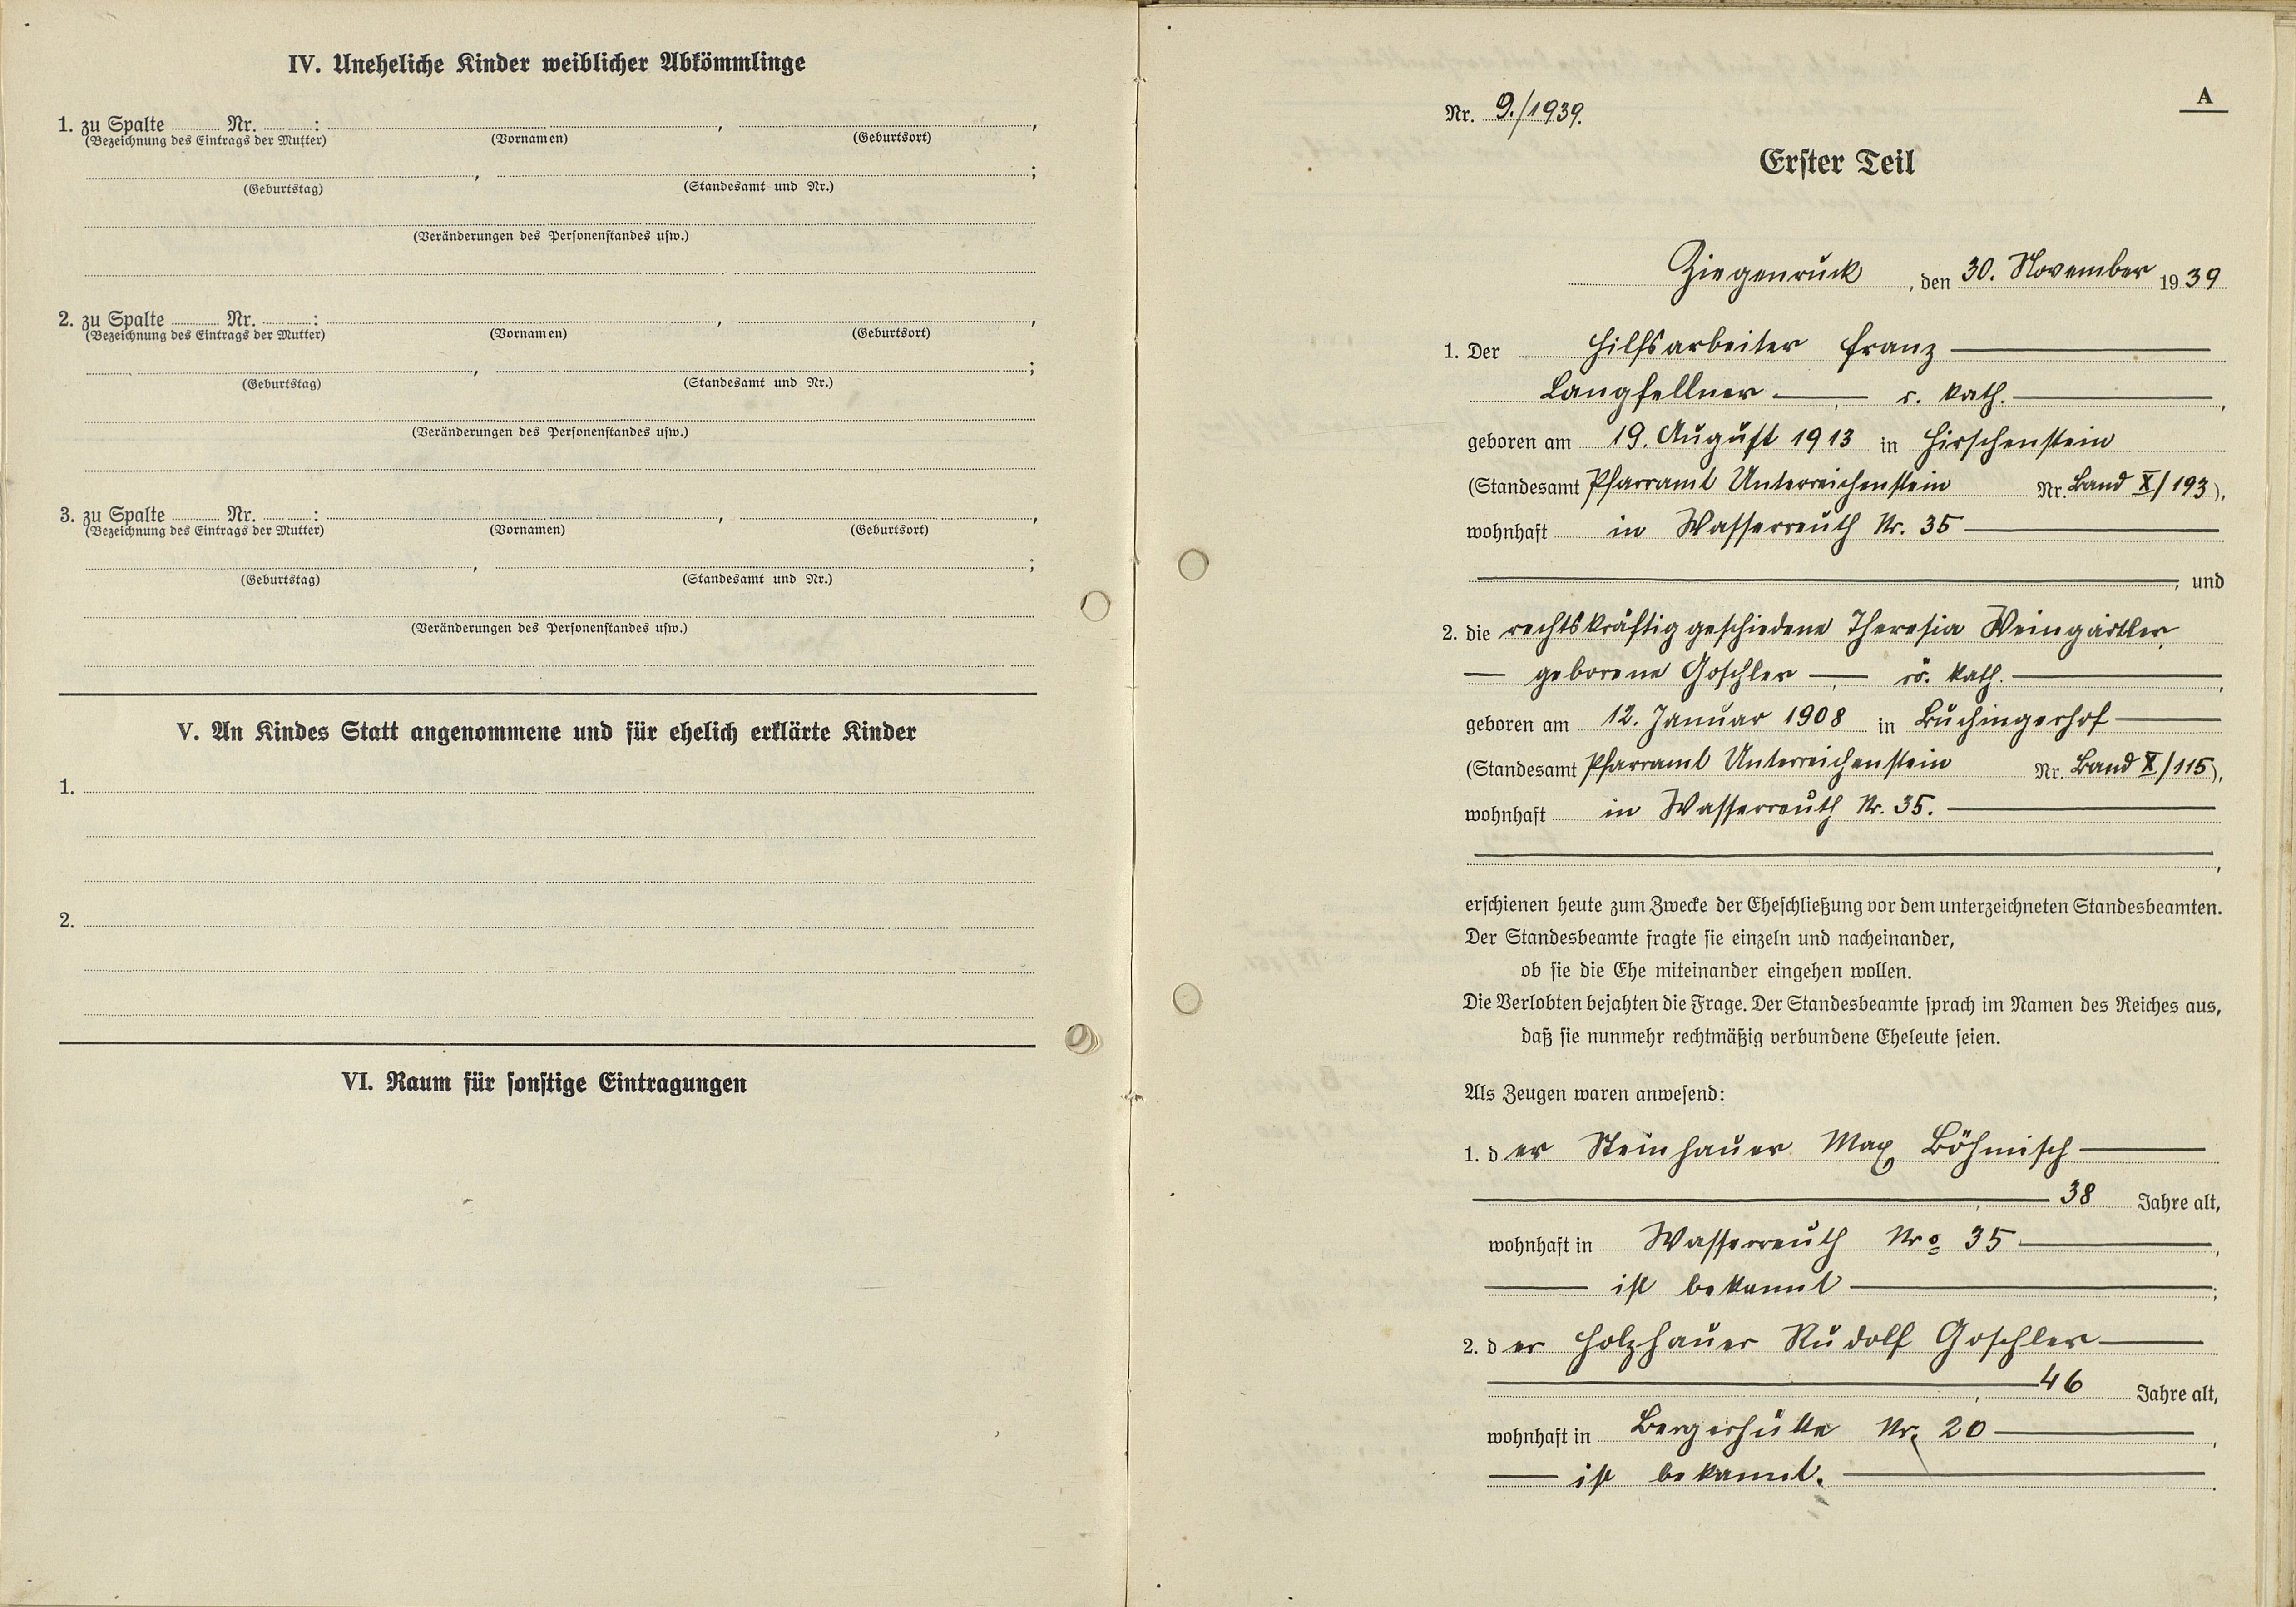 IV. Uneheliche Kinder weiblicher Abkömmlinge
1. zu Spalte ........ Nr. ........: ........, ........,
(Bezeichnung des Eintrags der Mutter) (Vornamen) (Geburtsort)
........, ........;
(Geburtstag) (Standesamt und Nr.)
(Veränderungen des Personenstandes usw.)
2. zu Spalte ........ Nr. ........: ........, ........,
(Bezeichnung des Eintrags der Mutter) (Vornamen) (Geburtsort)
........, ........;
(Geburtstag) (Standesamt und Nr.)
(Veränderungen des Personenstandes usw.)
3. zu Spalte ........ Nr. ........: ........, ........,
(Bezeichnung des Eintrags der Mutter) (Vornamen) (Geburtsort)
........, ........;
(Geburtstag) (Standesamt und Nr.)
(Veränderungen des Personenstandes usw.)
V. An Kindes Statt angenommene und für ehelich erklärte Kinder
1.
2.
VI. Raum für sonstige Eintragungen
A
Nr. 9./1939.
Erster Teil
Ziegenruck, den 30. November 1939
1. Der Hilfsarbeiter Franz
Langfellner, r. kath.,
geboren am 19. August 1913 in Hirschenstein
(Standesamt Pfarramt Unterreichenstein Nr. Band X/193),
wohnhaft in Wasserreuth Nr. 35
, und
2. die rechtskräftig geschiedene Theresia Weingärtler,
geborene Goschler, rö. kath.,
geboren am 12. Januar 1908 in Buchingerhof
(Standesamt Pfarramt Unterreichenstein Nr. Band X/115),
wohnhaft in Wasserreuth Nr. 35.
,
erschienen heute zum Zwecke der Eheschließung vor dem unterzeichneten Standesbeamten.
Der Standesbeamte fragte sie einzeln und nacheinander,
ob sie die Ehe miteinander eingehen wollen.
Die Verlobten bejahten die Frage. Der Standesbeamte sprach im Namen des Reiches aus,
daß sie nunmehr rechtmäßig verbundene Eheleute seien.
Als Zeugen waren anwesend:
1. der Steinhauer Max Böhmisch
, 38 Jahre alt,
wohnhaft in Wasserreuth Nro 35,
ist bekannt;
2. der Holzhauer Rudolf Goschler
, 46 Jahre alt,
wohnhaft in Bergerhütte Nr. 20,
ist bekannt.